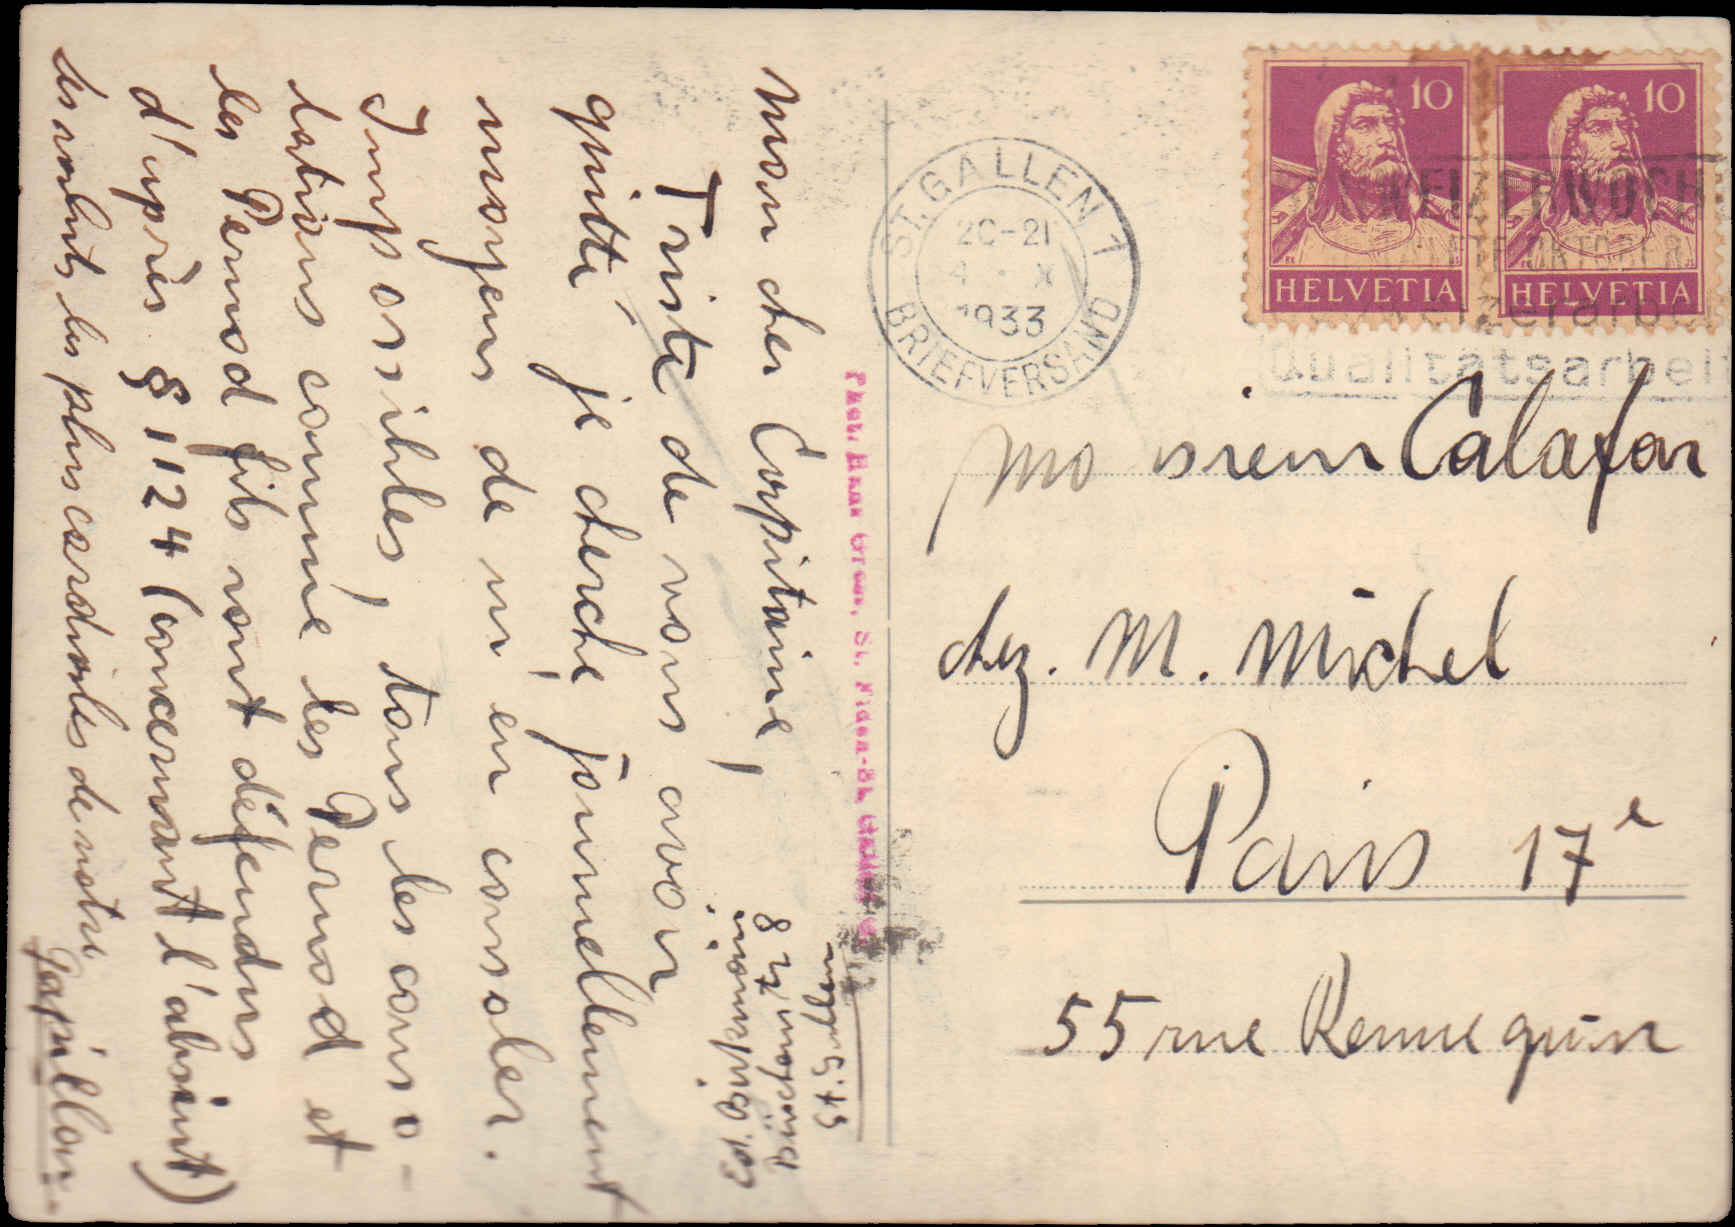 Mon cher Capitaine,
Triste de vous avoir
quitté je cherche journellement
moyens de m'en consoler.
Impossibles, tous les conso-
lations comme les Pernod et
les Pernod fils sont défendues
d'après § 1124 (concernant l'absint)
les saluts les plus cardiales de notre
Papillon
St. Gallen
8
ST. GALLEN 1
20-21
4 · X
1933
BRIEFVERSAND
10
HELVETIA
10
HELVETIA
Qualitätsarbeit
Phot. Hans Gross, St. Fiden-St. Gallen
Monsieur Calafar
chez. M. Michel
Paris 17e
55 rue Rennequin